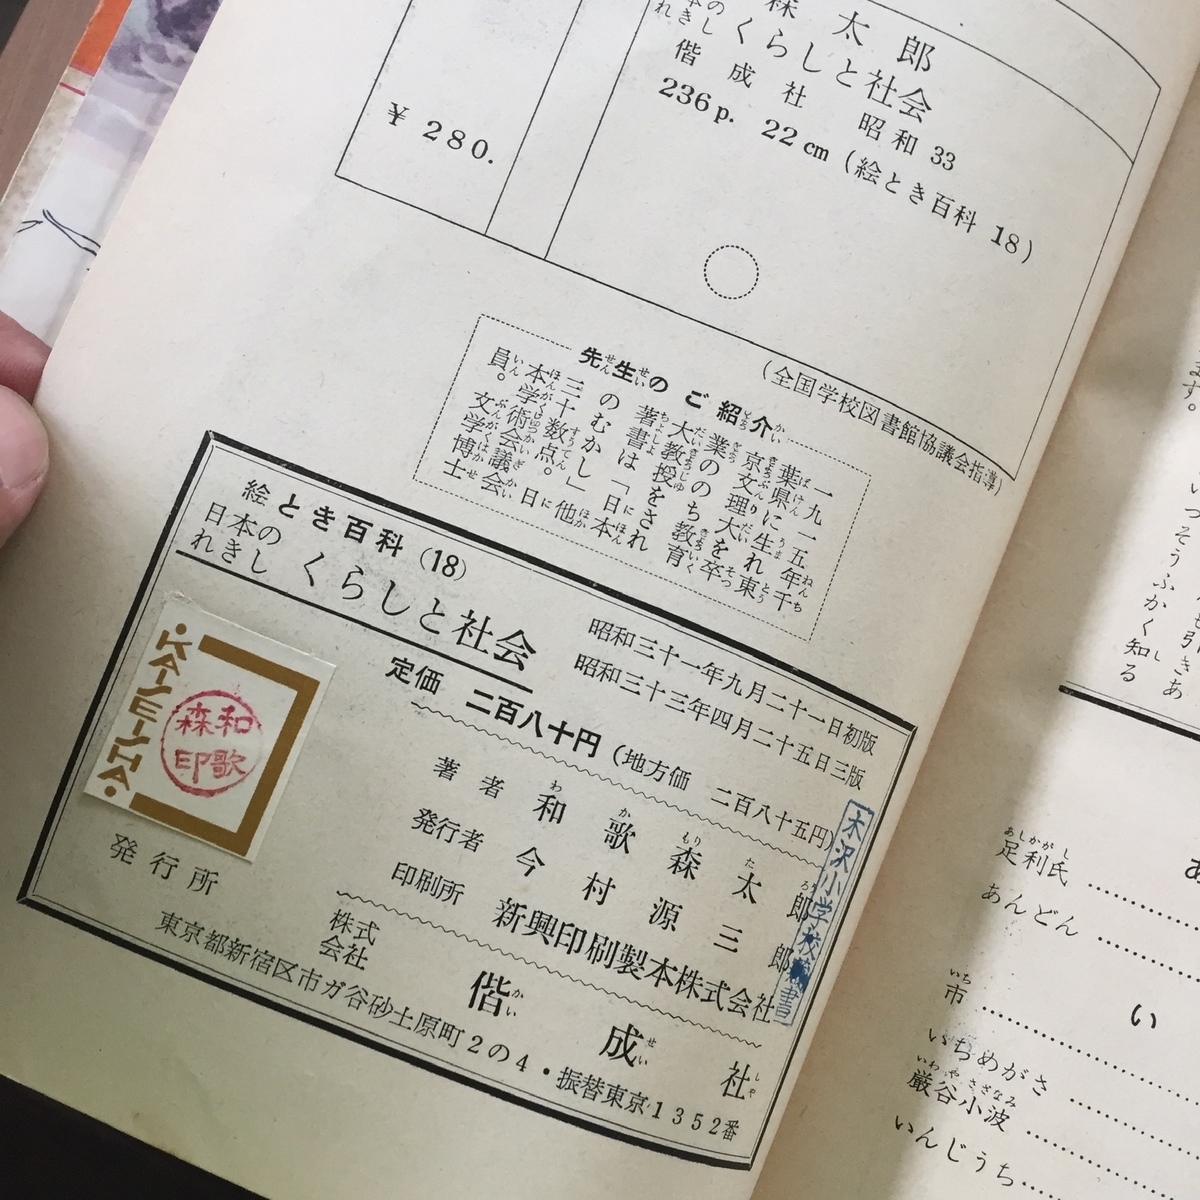 森 太 郎
くらしと社会
の
れきし
偕 成 社 昭和 33
236 p. 22 cm (絵とき百科 18)
¥ 280.
(全国学校図書館協議会指導)
先生のご紹介
一九一五年千
葉県に生れ東
京文理大を卒
業ののち教育
大教授をされ
著書は「日本
のむかし」他
三十数点。日
本学術会議会
員。文学博士
絵とき百科 (18)
日本の
れきし
くらしと社会
昭和三十一年九月二十一日初版
昭和三十三年四月二十五日三版
定価 二百八十円 (地方価 二百八十五円)
著者 和歌森太郎
発行者 今村源三郎
印刷所 新興印刷製本株式会社
発行所
株式
会社
偕成社
東京都新宿区市ガ谷砂土原町2の4・振替東京1352番
KAISEISHA
和歌
森印
木沢小学校蔵書
ます。
いっそうふかく知る
足利氏
あんどん
い
市
いちめがさ
巌谷小波
いんじうち